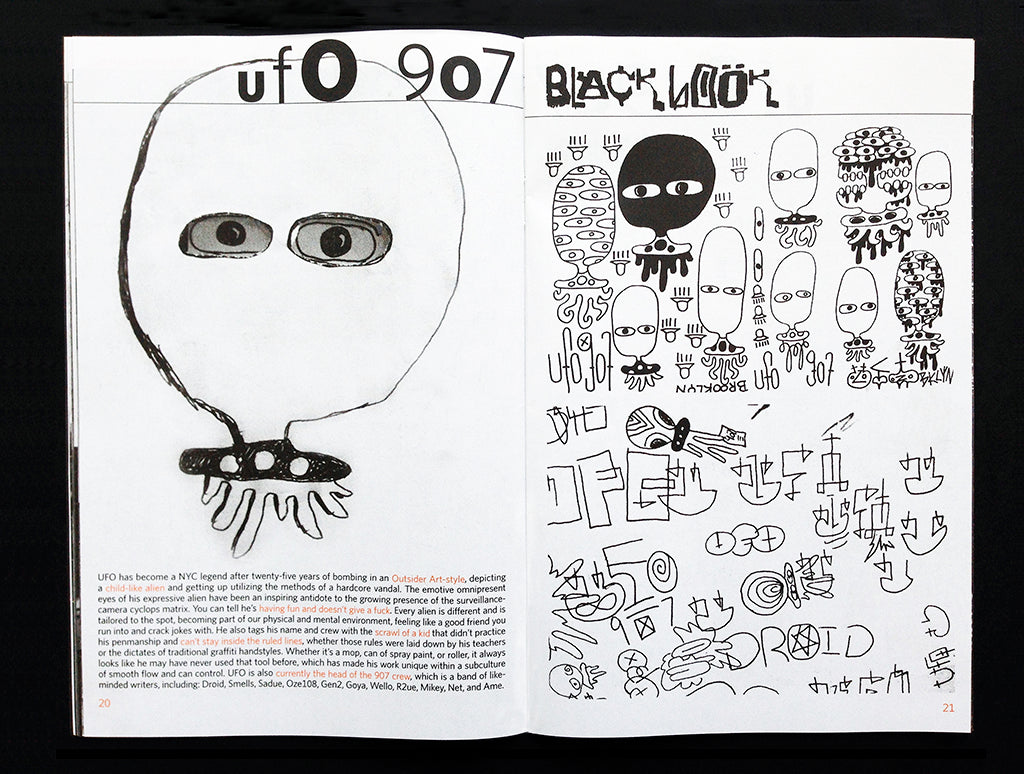 ufO 9o7
UFO has become a NYC legend after twenty-five years of bombing in an Outsider Art-style, depicting
a child-like alien and getting up utilizing the methods of a hardcore vandal. The emotive omnipresent
eyes of his expressive alien have been an inspiring antidote to the growing presence of the surveillance-
camera cyclops matrix. You can tell he's having fun and doesn't give a fuck. Every alien is different and is
tailored to the spot, becoming part of our physical and mental environment, feeling like a good friend you
run into and crack jokes with. He also tags his name and crew with the scrawl of a kid that didn't practice
his penmanship and can't stay inside the ruled lines, whether those rules were laid down by his teachers
or the dictates of traditional graffiti handstyles. Whether it's a mop, can of spray paint, or roller, it always
looks like he may have never used that tool before, which has made his work unique within a subculture
of smooth flow and can control. UFO is also currently the head of the 907 crew, which is a band of like-
minded writers, including: Droid, Smells, Sadue, Oze108, Gen2, Goya, Wello, R2ue, Mikey, Net, and Ame.
20
BLACK böök
ufo 907
BROOKLYN
ufo 907
BKLYN
DROID
21